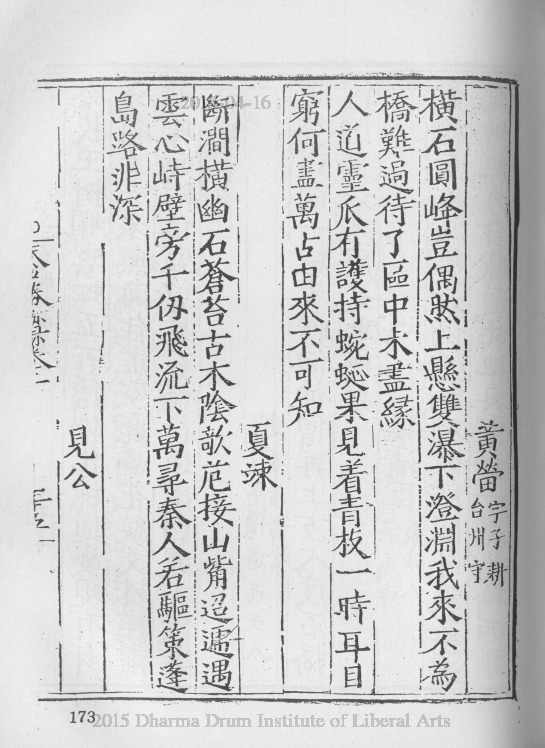 黃䓨字子耕
台州守
橫石圓峰豈偶然上懸雙瀑下澄淵我來不為
橋難過待了區中未盡緣
人迫靈爪有護持蜿蜒果見着青枝一時耳目
窮何盡萬占由來不可知
夏竦
斷澗橫幽石蒼苔古木陰歌苑接山觜迢遞遇
雲心峙壁旁千仭飛流下萬尋秦人若驅策蓬
島路非深
見公
天台勝
173
2015-04-16
2015 Dharma Drum Institute of Liberal Arts